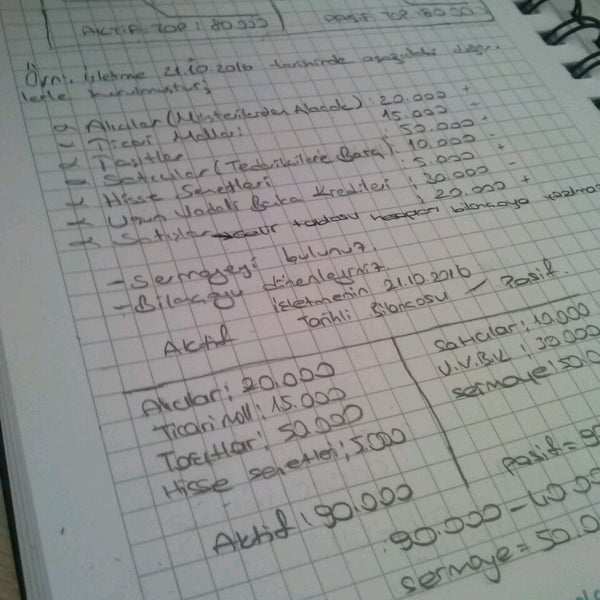 AKTİF. TOP : 80.000
PASİF. TOP. : 80.000
Örn: işletme 21.10.2016 tarihinde aşağıdaki değer
lerle kurulmuştur;
Alıcılar (Müşterilerden Alacak) : 20.000 +
Ticari Mallar : 15.000 +
Taşıtlar : 50.000 +
Satıcılar (Tedarikçilere Borç) : 10.000 -
Hisse Senetleri : 5.000 +
Uzun Vadeli Banka Kredileri : 30.000 -
Satışlar : 20.000 +
gelir tablosu hesapları bilançoya yazılmaz
- Sermayeyi bulunuz,
- Bilançoyu düzenleyiniz
işletmenin 21.10.2016
Aktif Tarihli Bilançosu Pasif.
Alıcılar: 20.000
Ticari mall: 15.000
Taşıtlar: 50.000
Hisse senetleri; 5.000
Aktif : 90.000
satıcılar: 10.000
U.V.B.K: 30.000
sermaye: 50.0
pasif = 90
90.000-40.00
sermaye = 50.0